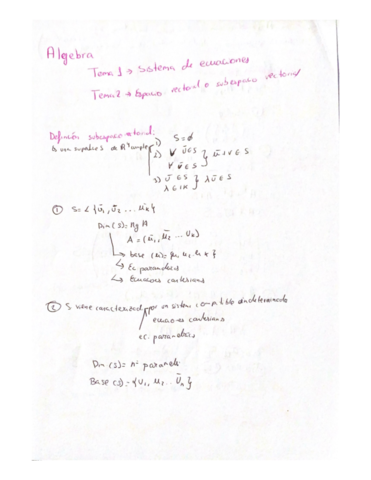 Algebra
Tema 1 → Sistema de ecuaciones
Tema 2 → Espacio vectorial o subespacio vectorial
Definición subespacio vectorial:
Es un de R^n cumple 1) S=∅
2) ∀ ū∈S
∀ v̄∈S } ū+v∈S
3) ū∈S
λ∈IK } λū∈S
① S=L{ū1, ū2 ... ūk}
Dim(S)= Rg A
A=(ū1, ū2 ... ūk)
→ base (ū)={u1 u2 uk}
↳ Ec. parametricas
↳ Ecuaciones cartesianas
② S viene caracterizado por un sistema compatible indeterminado
ecuaciones cartesianas
ec. parametricas
Dim(S)= nº parametros
Base(S)={u1, u2 ... ūn}